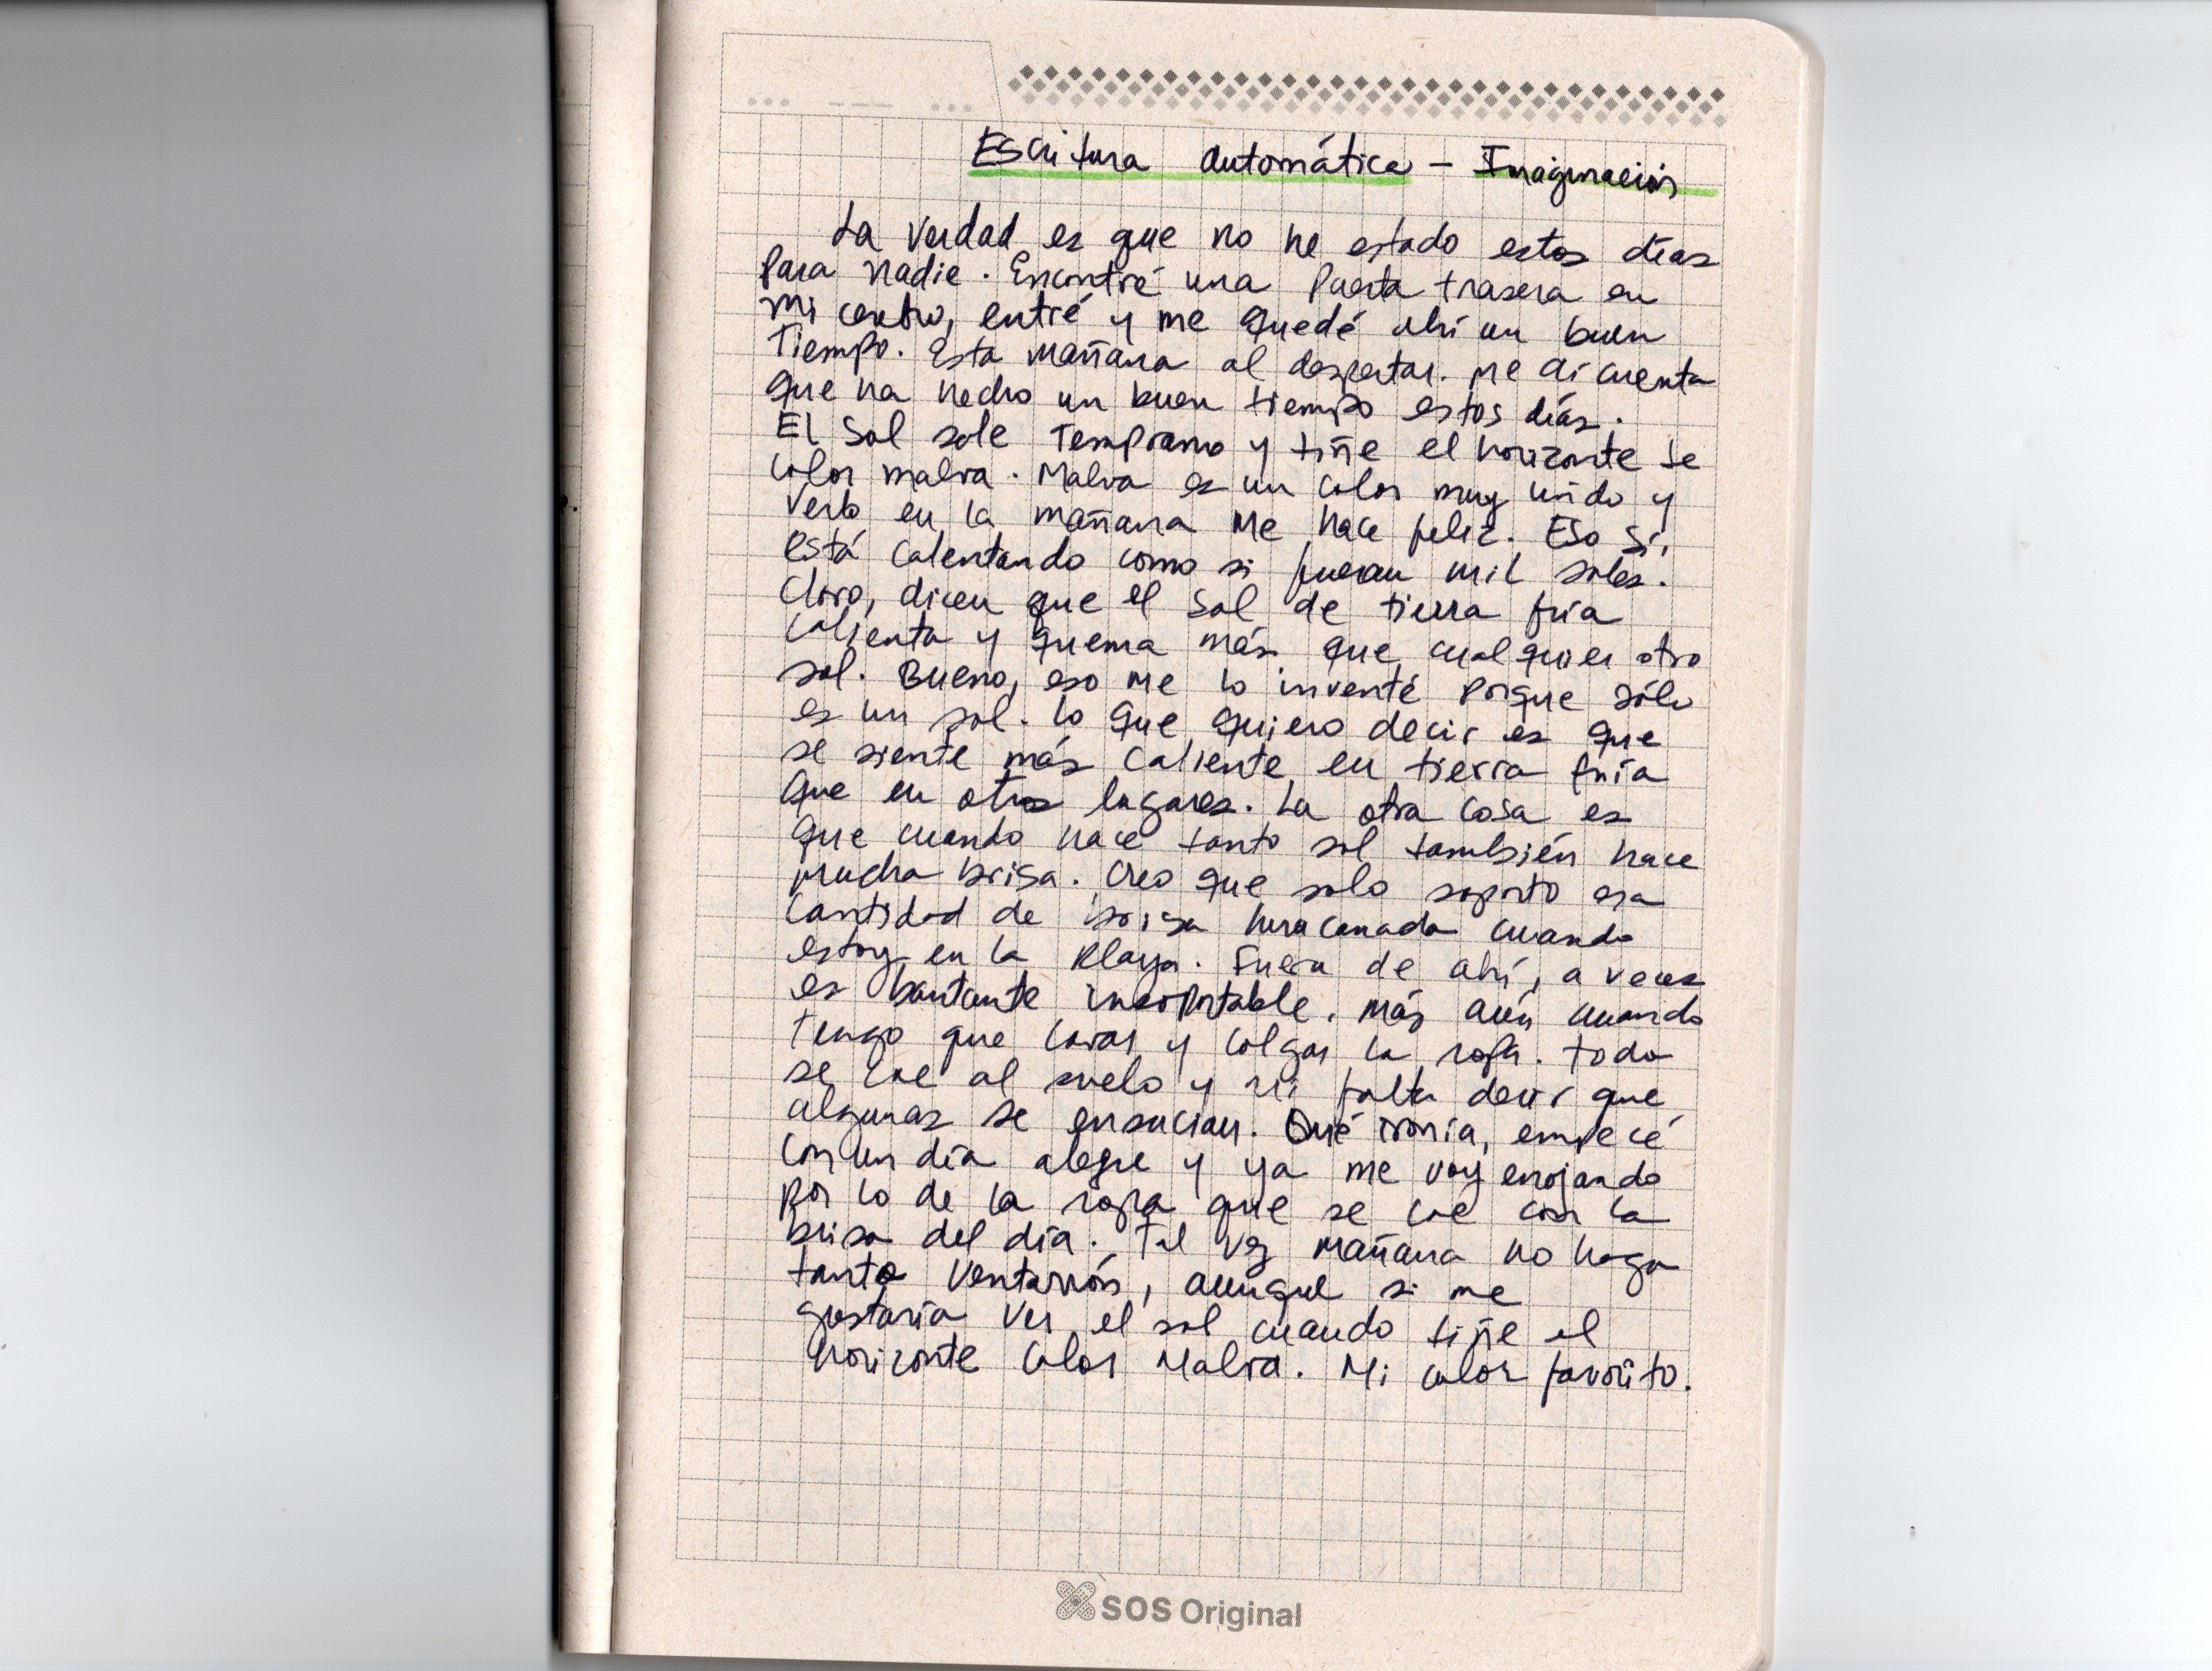 Escritura automática - Imaginación
La verdad es que no he estado estos días
para nadie. Encontré una puerta trasera en
mi centro, entré y me quedé ahí un buen
Tiempo. Esta mañana al despertar. me di cuenta
que ha hecho un buen tiempo estos días.
El Sol sale Temprano y tiñe el horizonte de
color malva. Malva es un color muy lindo y
verlo en la mañana me hace feliz. Eso sí,
está calentando como si fueran mil soles.
Claro, dicen que el sol de tierra fría
calienta y quema más que cualquier otro
sol. Bueno, eso me lo inventé porque sólo
es un sol. Lo que quiero decir es que
se siente más caliente en tierra fría
que en otros lugares. La otra cosa es
que cuando hace tanto sol también hace
mucha brisa. Creo que solo soporto esa
cantidad de brisa huracanada cuando
estoy en la playa. Fuera de ahí, a veces
es bastante insoportable. Más aún cuando
Tengo que lavar y colgar la ropa. Todo
se cae al suelo y ni falta decir que
algunas se ensucian. Qué ironía, empecé
con un día alegre y ya me voy enojando
por lo de la ropa que se cae con la
brisa del día. Tal vez mañana no haga
tanto ventarrón, aunque si me
gustaría ver el sol cuando tiñe el
horizonte color Malva. Mi color favorito.
SOS Original